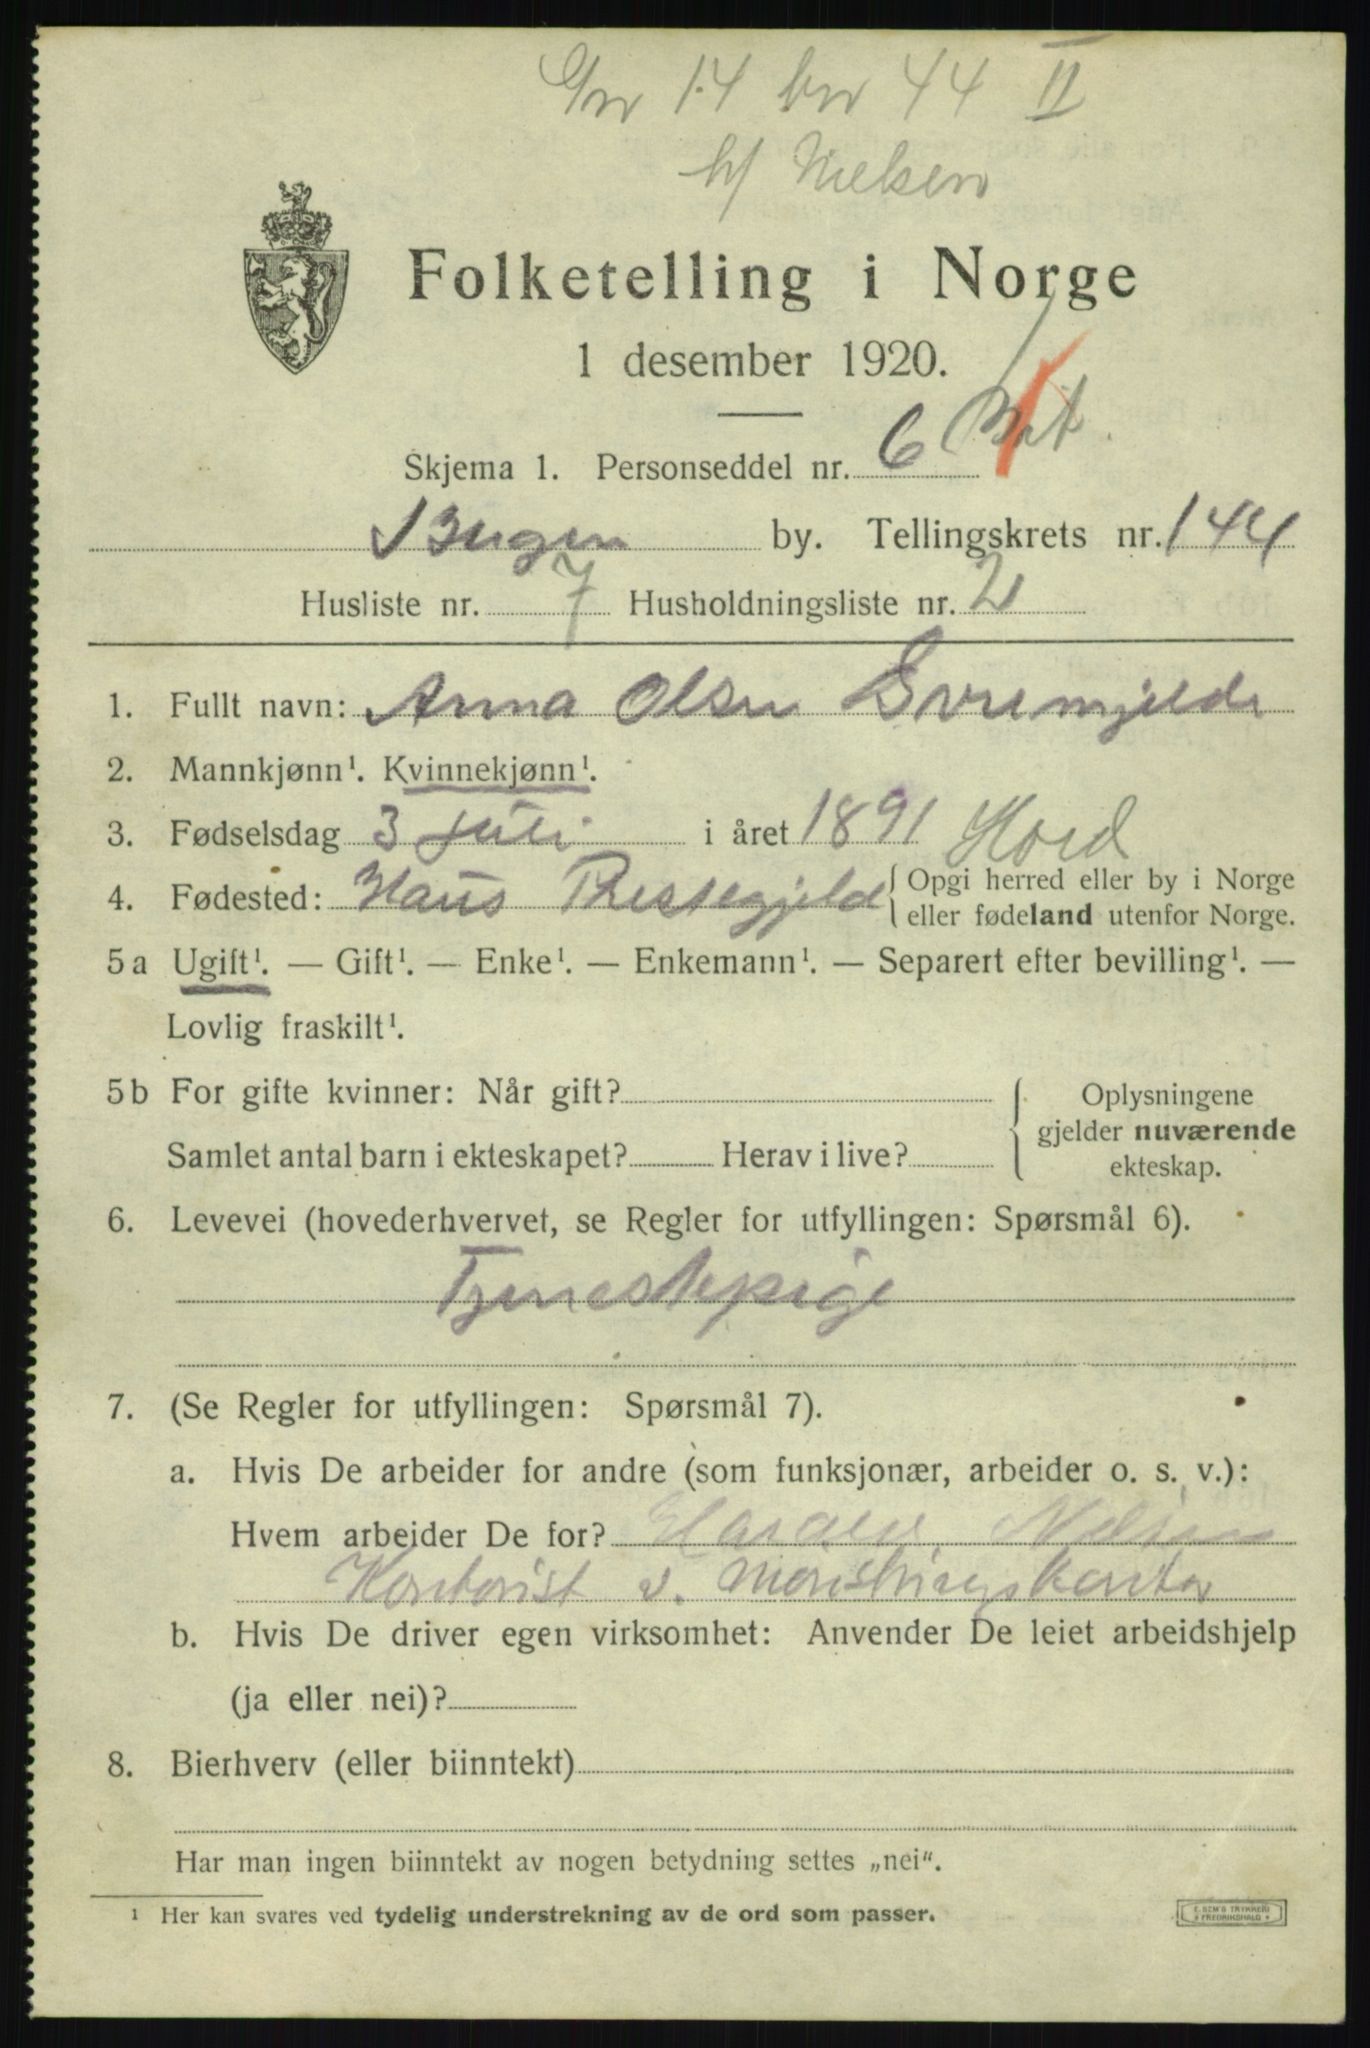 Gn 14 bn 44 II
h/ Nielsen
Folketelling i Norge
1 desember 1920.
Skjema 1. Personseddel nr. 6
Bergen by. Tellingskrets nr. 144
Husliste nr. 7 Husholdningsliste nr. 2
1. Fullt navn: Anna Olsen
2. Mannkjønn¹. Kvinnekjønn¹.
3. Fødselsdag 3 juli i året 1891 Hord
4. Fødested: Haus Prestegjeld Opgi herred eller by i Norge
eller fødeland utenfor Norge.
5a Ugift¹. — Gift¹. — Enke¹. — Enkemann¹. — Separert efter bevilling¹. —
Lovlig fraskilt¹.
5b For gifte kvinner: Når gift? Oplysningene
gjelder nuværende
Samlet antal barn i ekteskapet? Herav i live? ekteskap.
6. Levevei (hovederhvervet, se Regler for utfyllingen: Spørsmål 6).
Tjenestepige
7. (Se Regler for utfyllingen: Spørsmål 7).
a. Hvis De arbeider for andre (som funksjonær, arbeider o. s. v.):
Hvem arbeider De for? Harald Nielsen
Kontorist v. Mønstringskontor
b. Hvis De driver egen virksomhet: Anvender De leiet arbeidshjelp
(ja eller nei)?
8. Bierhverv (eller biinntekt)
Har man ingen biinntekt av nogen betydning settes „nei".
¹ Her kan svares ved tydelig understrekning av de ord som passer.
E. SEM'S TRYKKERI
FREDRIKSHALD